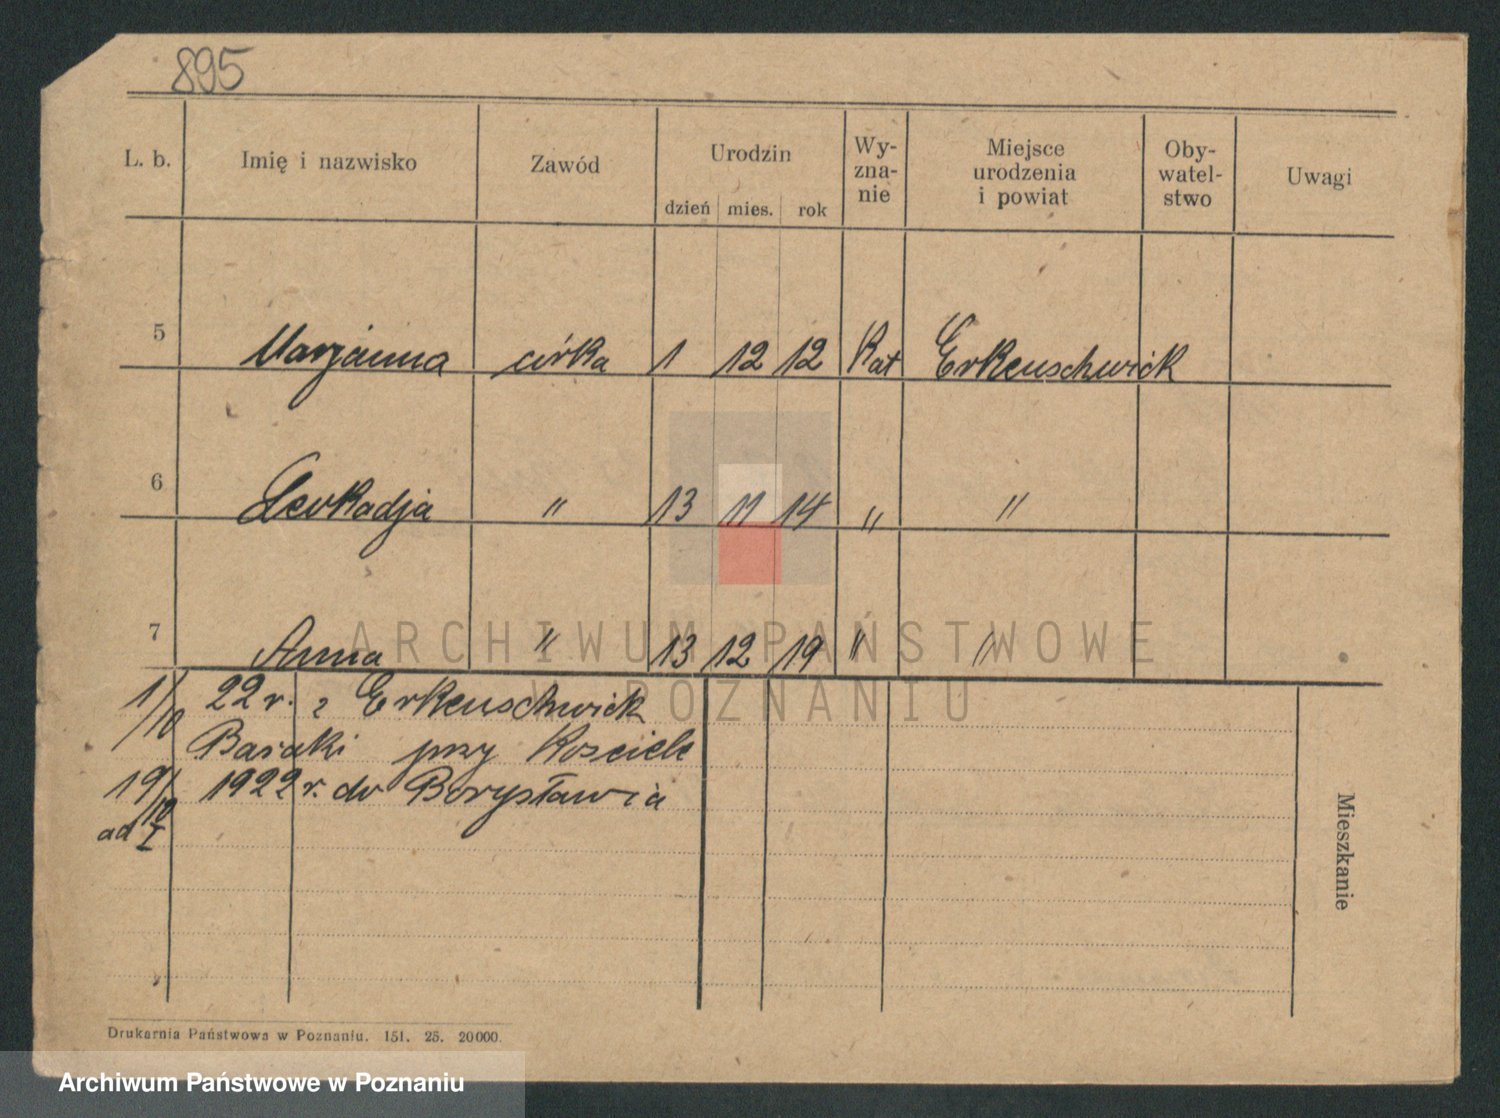 895
L. b. Imię i nazwisko Zawód Urodzin dzień mies. rok Wy-zna-nie Miejsce urodzenia i powiat Oby-watel-stwo Uwagi
5 Marjanna córka 1 12 12 Kat Erkenschwick
6 Leokadja " 13 11 14 " "
7 Anna " 13 12 19 " "
1/10 22 r. z Erkenschwick
Baraki przy Kosciele
19/10 1922 r. do Borysławia
ad I
Mieszkanie
Drukarnia Państwowa w Poznaniu. 151. 25. 20000.
ARCHIWUM PAŃSTWOWE
W POZNANIU
Archiwum Państwowe w Poznaniu